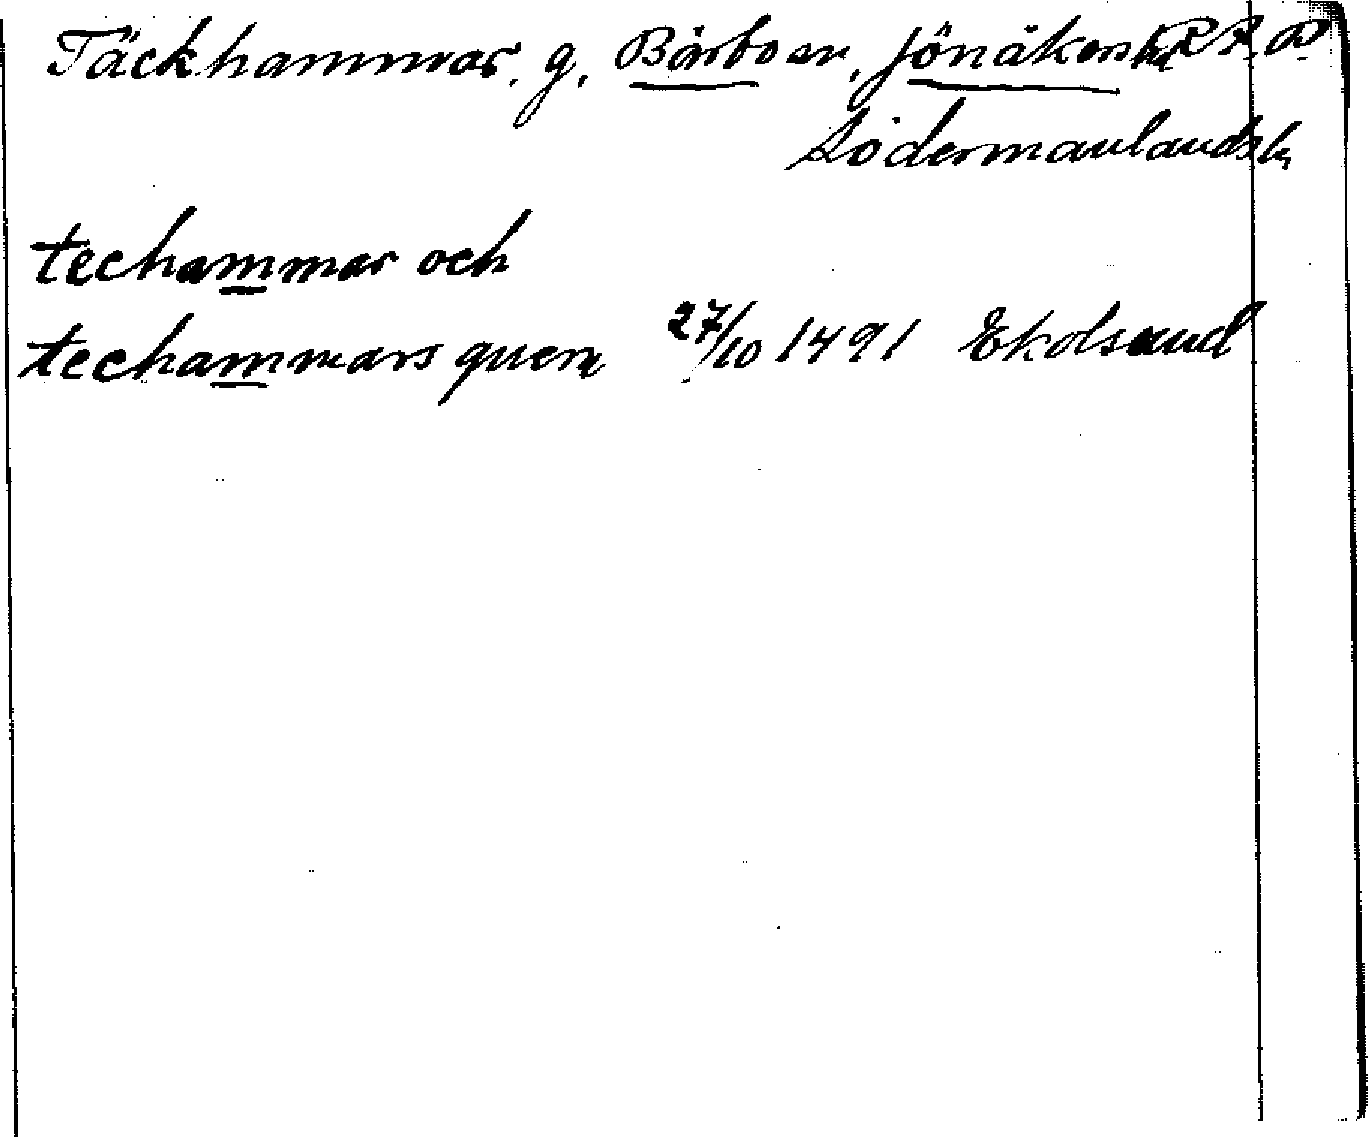 Täckhammar, g, Bärbo sn, Jönåkers hd RA P.
Södermanlands l.
techammar och
techammars quern 27/10 1491 Ekolsund